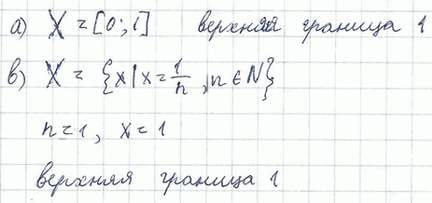 а) X = [0; 1] верхняя граница 1
в) X = {x | x = 1/n, n ∈ N}
n = 1, x = 1
верхняя граница 1